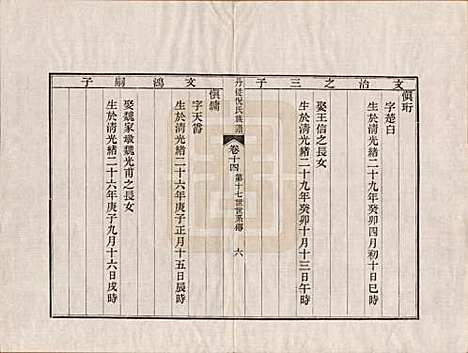 文治之三子
愼珩
字楚白
生於清光緒二十九年癸卯四月初十日巳時
娶王信之長女
生於清光緒二十九年癸卯十月十三日午時
丹徒倪氏族譜
卷十四
第十七世世系傳
六
文鴻嗣子
愼鏞
字天爵
生於清光緒二十六年庚子正月十五日辰時
娶魏家墩魏光甫之長女
生於清光緒二十六年庚子九月十六日戌時